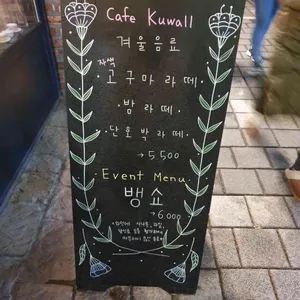 Cafe Kuwall
겨울음료
자색
고구마라떼
· 밤라떼
· 단호박라떼
→5,500
Event Menu
뱅쇼
→6,000